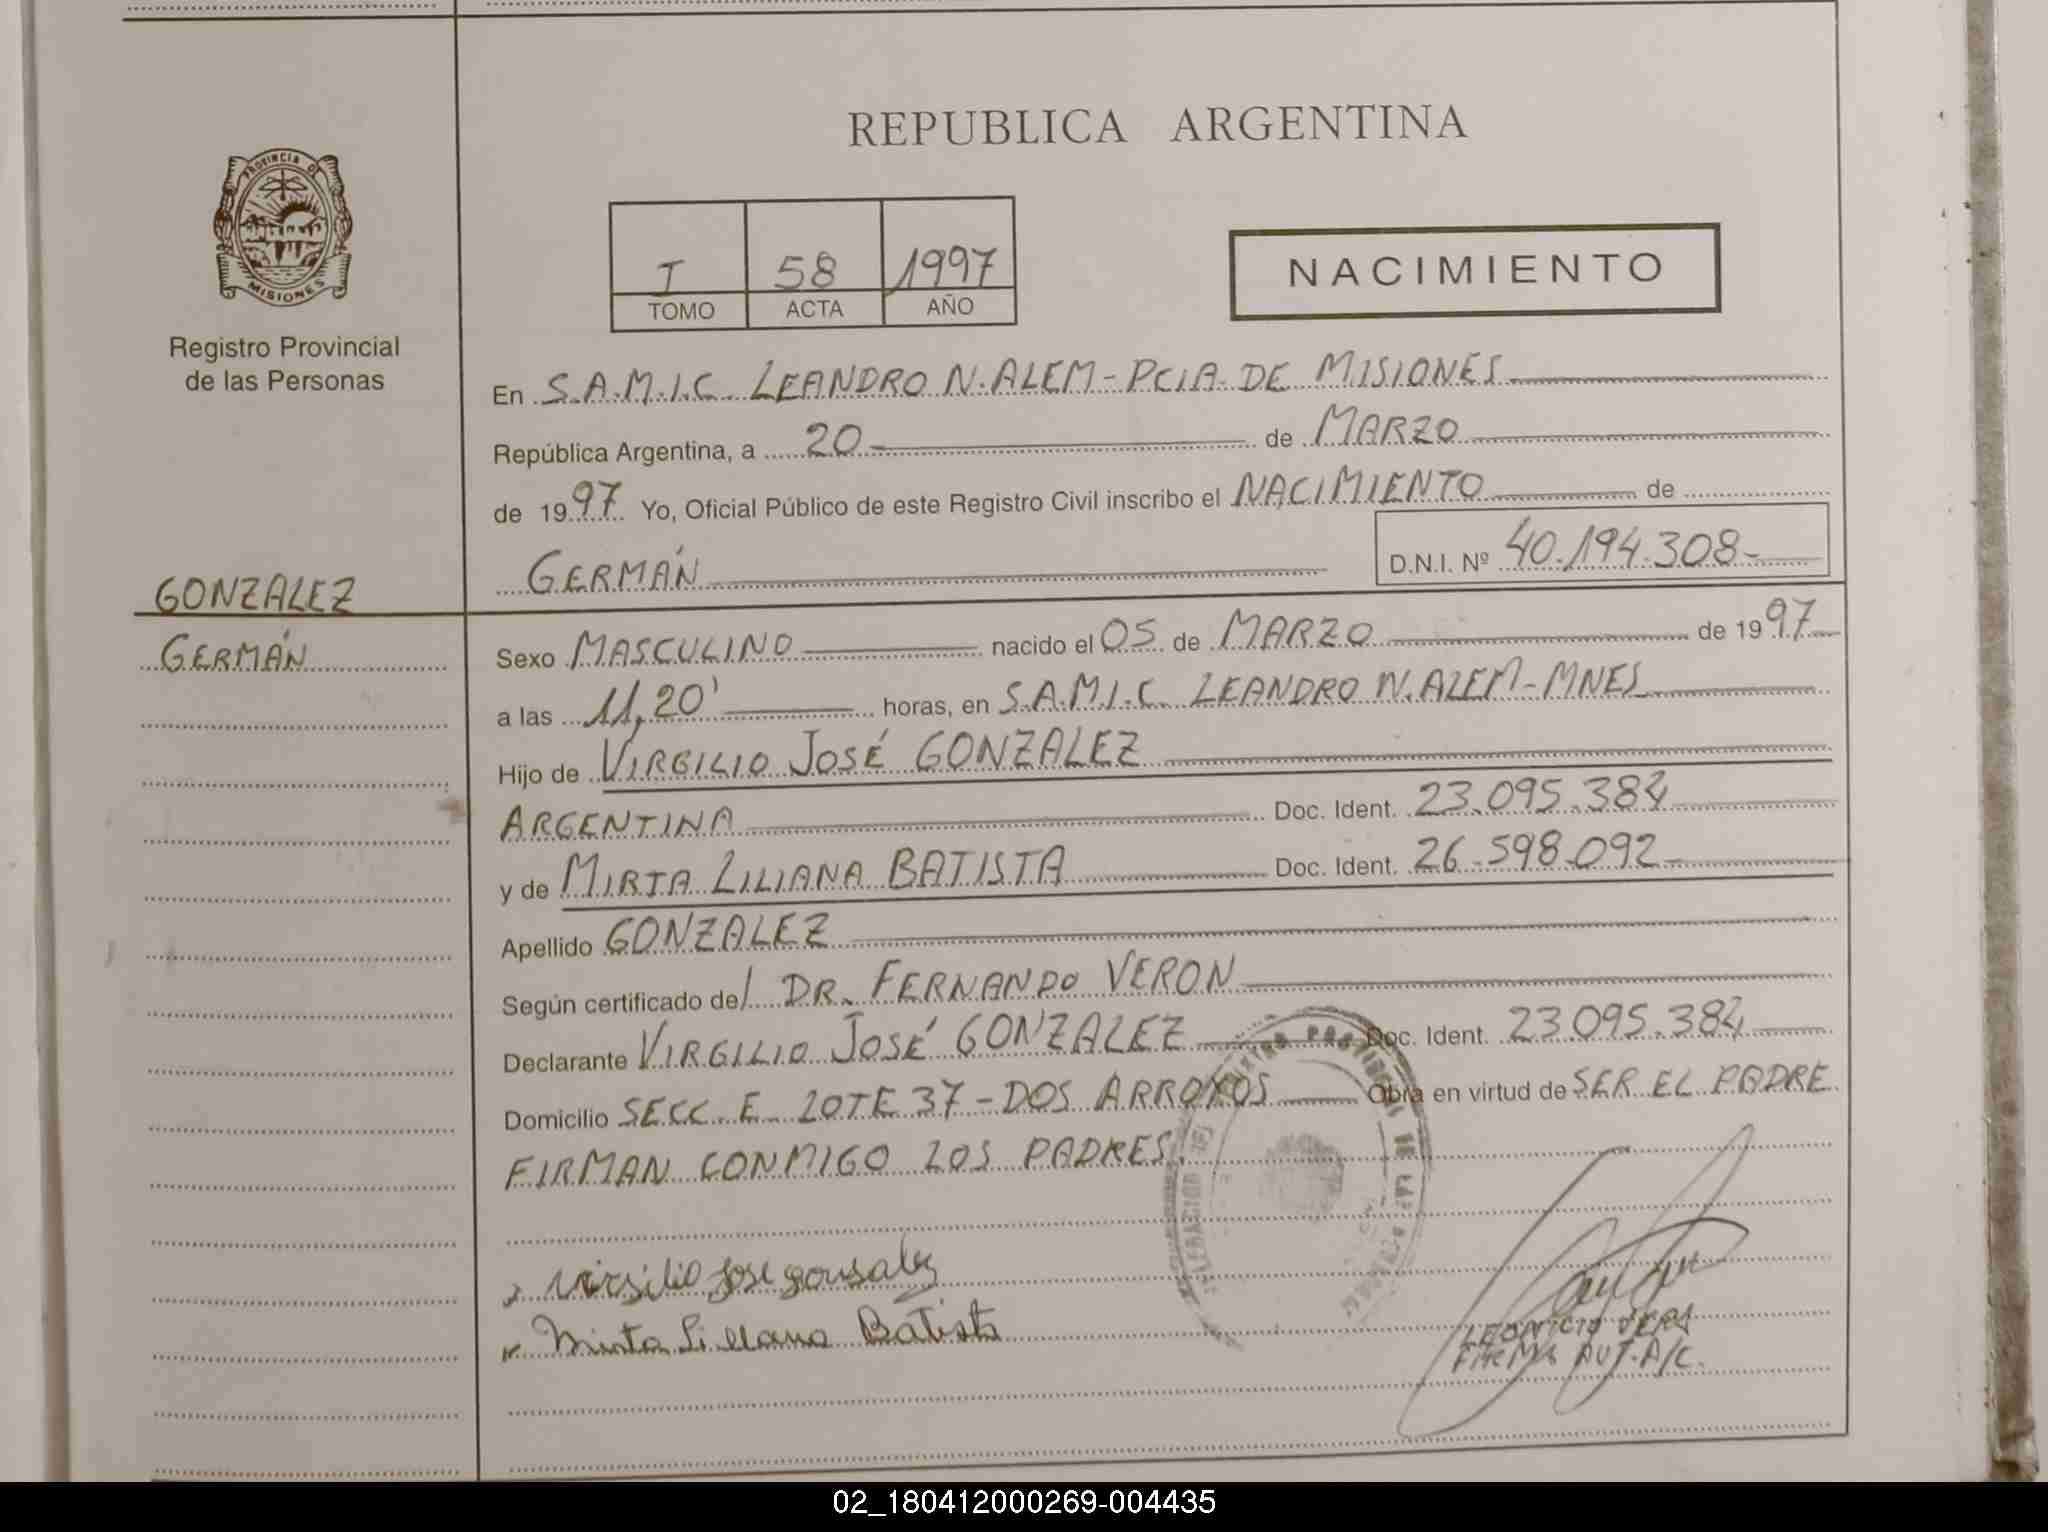 REPUBLICA ARGENTINA
PROVINCIA DE
MISIONES
Registro Provincial
de las Personas
I 58 1997
TOMO ACTA AÑO
NACIMIENTO
En S.A.M.I.C. LEANDRO N. ALEM - PCIA. DE MISIONES
República Argentina, a 20 - de MARZO
de 1997 Yo, Oficial Público de este Registro Civil inscribo el NACIMIENTO de
GERMÁN D.N.I. Nº 40.194.308-
GONZALEZ
GERMÁN
Sexo MASCULINO nacido el 05 de MARZO de 1997
a las 11,20' horas, en S.A.M.I.C. LEANDRO N. ALEM - MNES
Hijo de VIRGILIO JOSÉ GONZALEZ
ARGENTINA Doc. Ident. 23.095.384
y de MIRTA LILIANA BATISTA Doc. Ident. 26.598.092-
Apellido GONZALEZ
Según certificado del DR. FERNANDO VERON
Declarante VIRGILIO JOSÉ GONZALEZ Doc. Ident. 23.095.384
Domicilio SECC. E LOTE 37 - DOS ARROYOS Obra en virtud de SER EL PADRE
FIRMAN CONMIGO LOS PADRES.
Virgilio Jose gonsalez
Mirta Liliana Batista
LEONICIO VERA
FIRMA AUT. A/C.
02_180412000269-004435